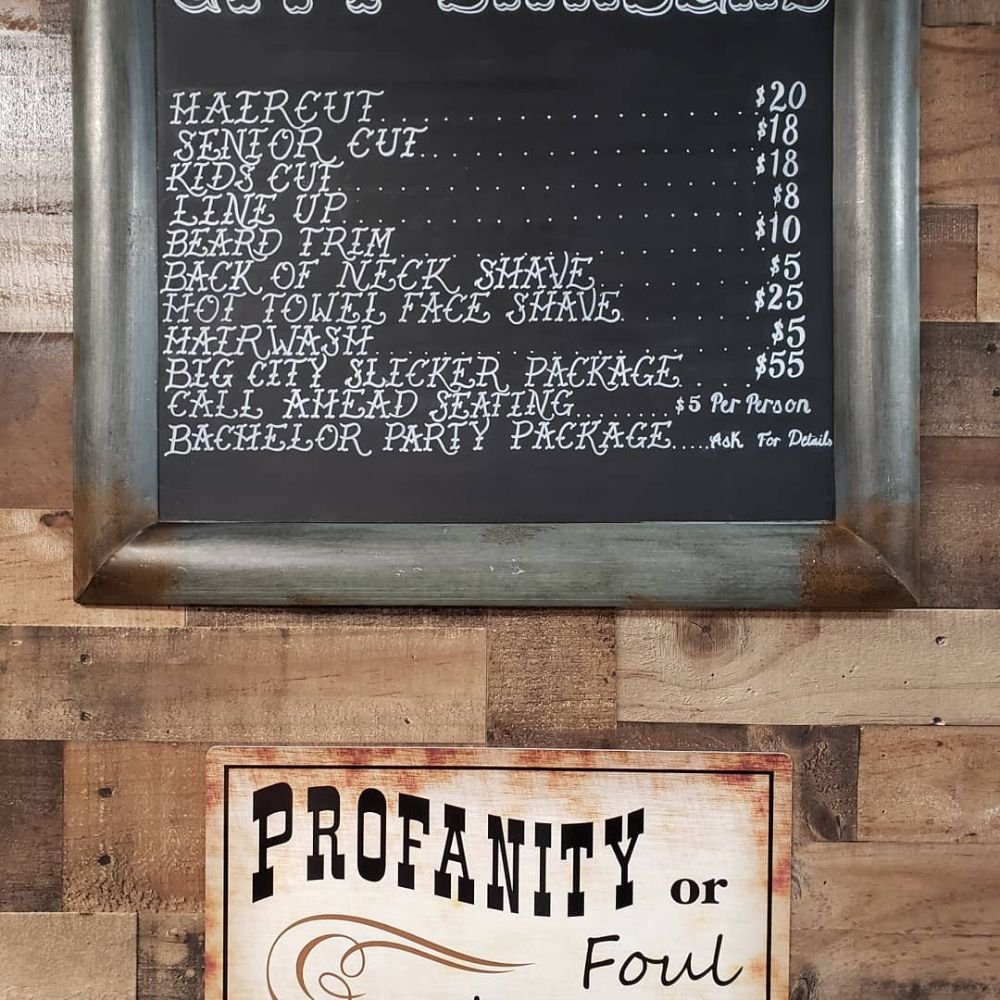 CITY BARBERS
HAIRCUT..................$20
SENIOR CUT..................$18
KIDS CUT..................$18
LINE UP..................$8
BEARD TRIM..................$10
BACK OF NECK SHAVE..........$5
HOT TOWEL FACE SHAVE.......$25
HAIRWASH..................$5
BIG CITY SLICKER PACKAGE.....$55
CALL AHEAD SEATING........$5 Per Person
BACHELOR PARTY PACKAGE.....Ask For Details
PROFANITY or
Foul